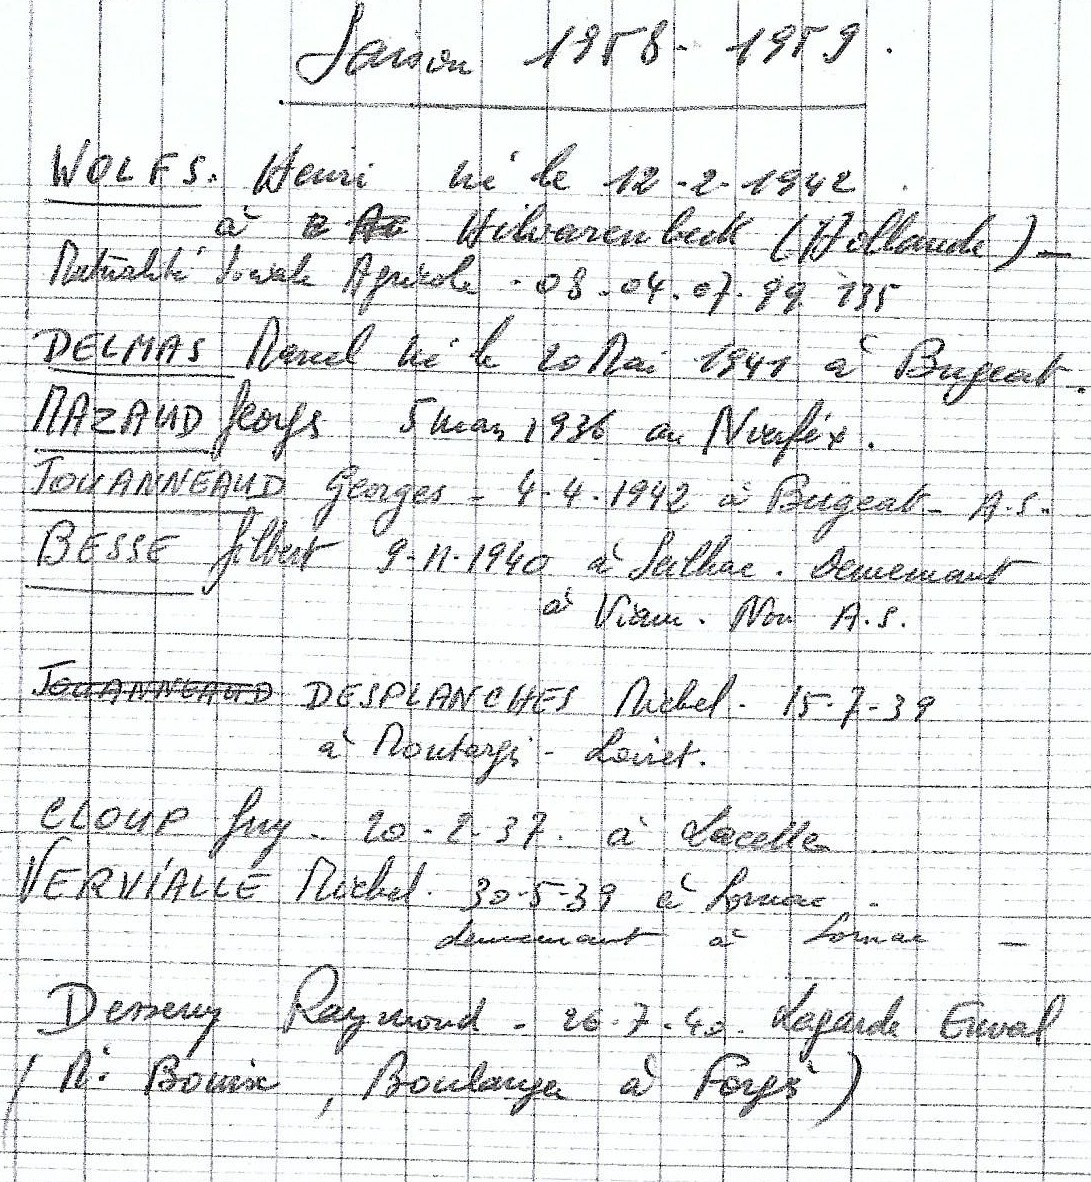 Saison 1958-1959.
WOLFS. Henri né le 12-2-1942
à Hilvarenbeck (Hollande) -
Mutualité Sociale Agricole. 08.04.07.99 135
DELMAS Marcel né le 20 Mai 1941 à Bugeat.
MAZAUD Georges 5 mars 1936 au
JOUANNEAUD Georges - 4.4.1942 à Bugeat - A.S.
BESSE Gilbert 9-11-1940 à Seilhac. Demeurant
à Viam. Non A.S.
JOUANNEAUD DESPLANCHES Michel. 15-7-39
à Montargis - Loiret.
CLOUP Guy. 20-2-37. à Lacelle
VERVIALLE Michel. 30-5-39 à Lornac.
demeurant à Lornac -
Raymond - 26.7.40. Lagarde Enval
(Mr Bouix, Boulanger à Forgès)